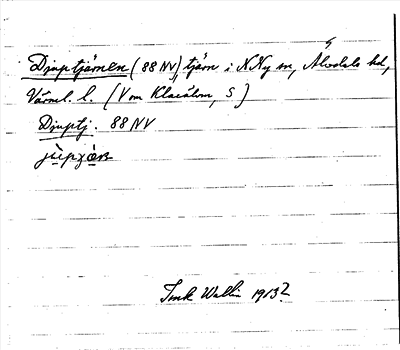 Djuptjärnen (88 NV), tjärn i N. Ny sn, Älvdals hd,
Värml. l. (Vm Klarälven, S)
Djuptj. 88 NV
Wallin 1913?